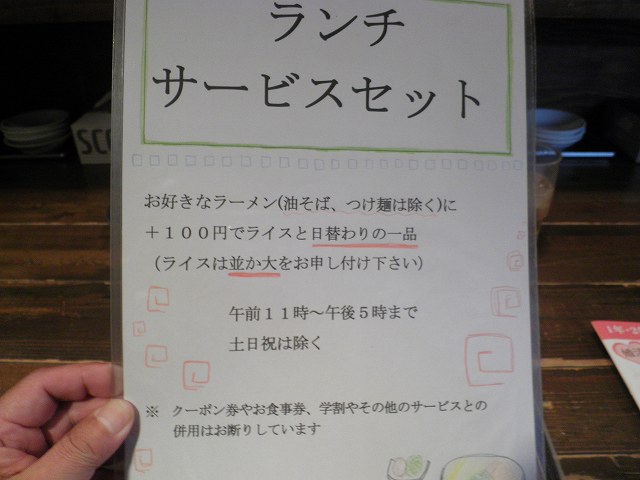 ランチ
サービスセット
お好きなラーメン(油そば、つけ麺は除く)に
＋１００円でライスと日替わりの一品
（ライスは並か大をお申し付け下さい）
午前１１時～午後５時まで
土日祝は除く
※　クーポン券やお食事券、学割やその他のサービスとの
併用はお断りしています
SC